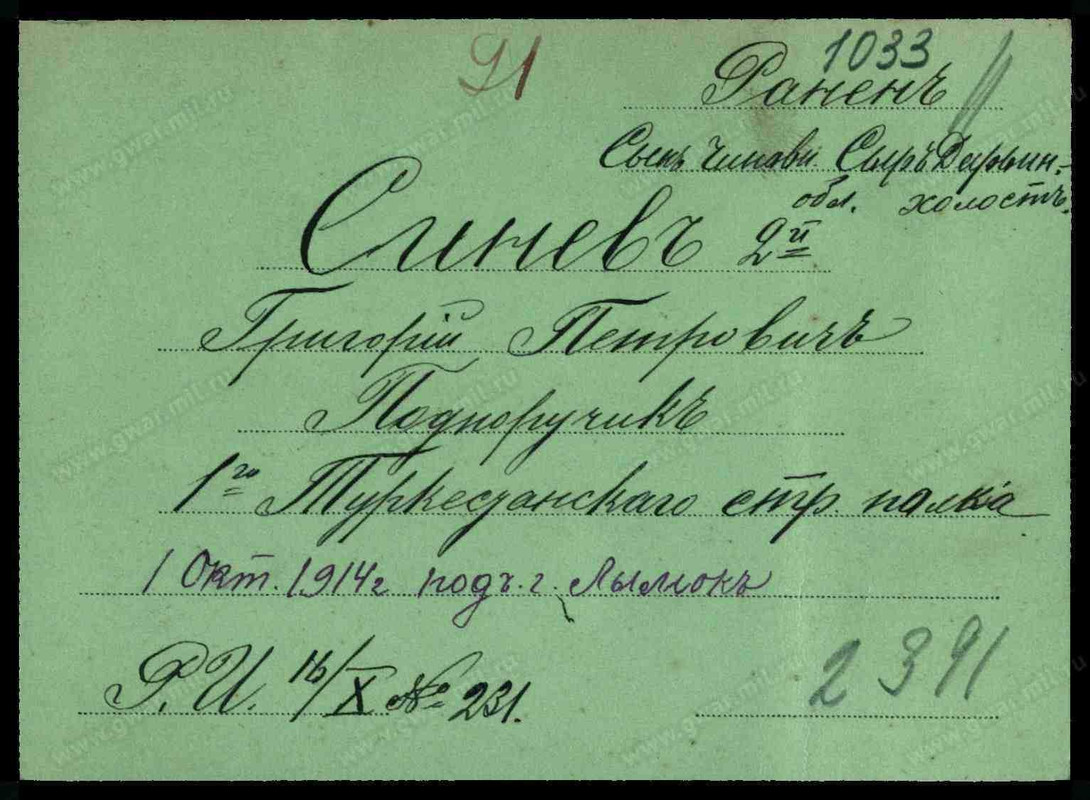 91
1033
Раненъ
Сынъ чиновн Сыръ Дарьин-
обл. холостъ.
Синевъ 2й
Григорій Петровичъ
Подпоручикъ
1го Туркестанскаго стр полка
1 Окт. 1914г подъ г.
Р.И. 16/X № 231.
2391
www.gwar.mil.ru